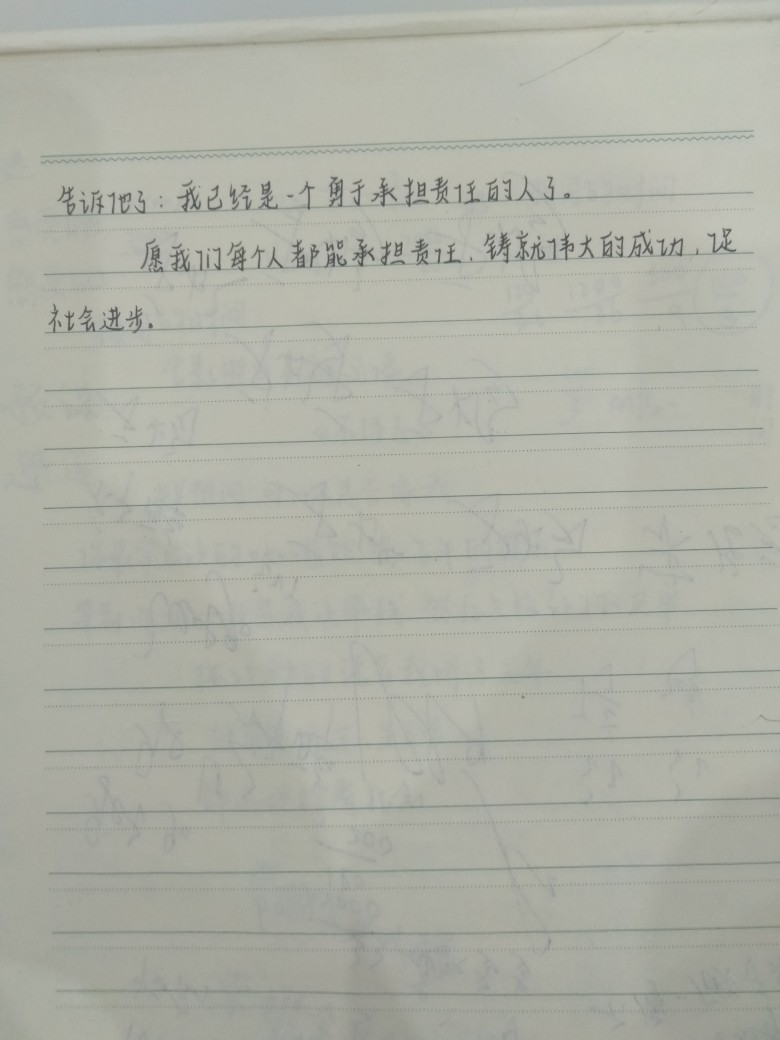 告诉他了：我已经是一个勇于承担责任的人了。
愿我们每个人都能承担责任，铸就伟大的成功，促
社会进步。